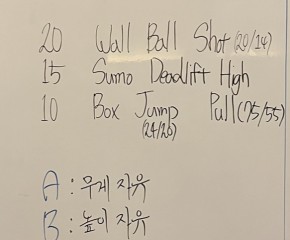 20 Wall Ball Shot (20/14)
15 Sumo Deadlift High
10 Box Jump Pull (75/55)
(24/20)
A : 무게 자유
B : 높이 자유